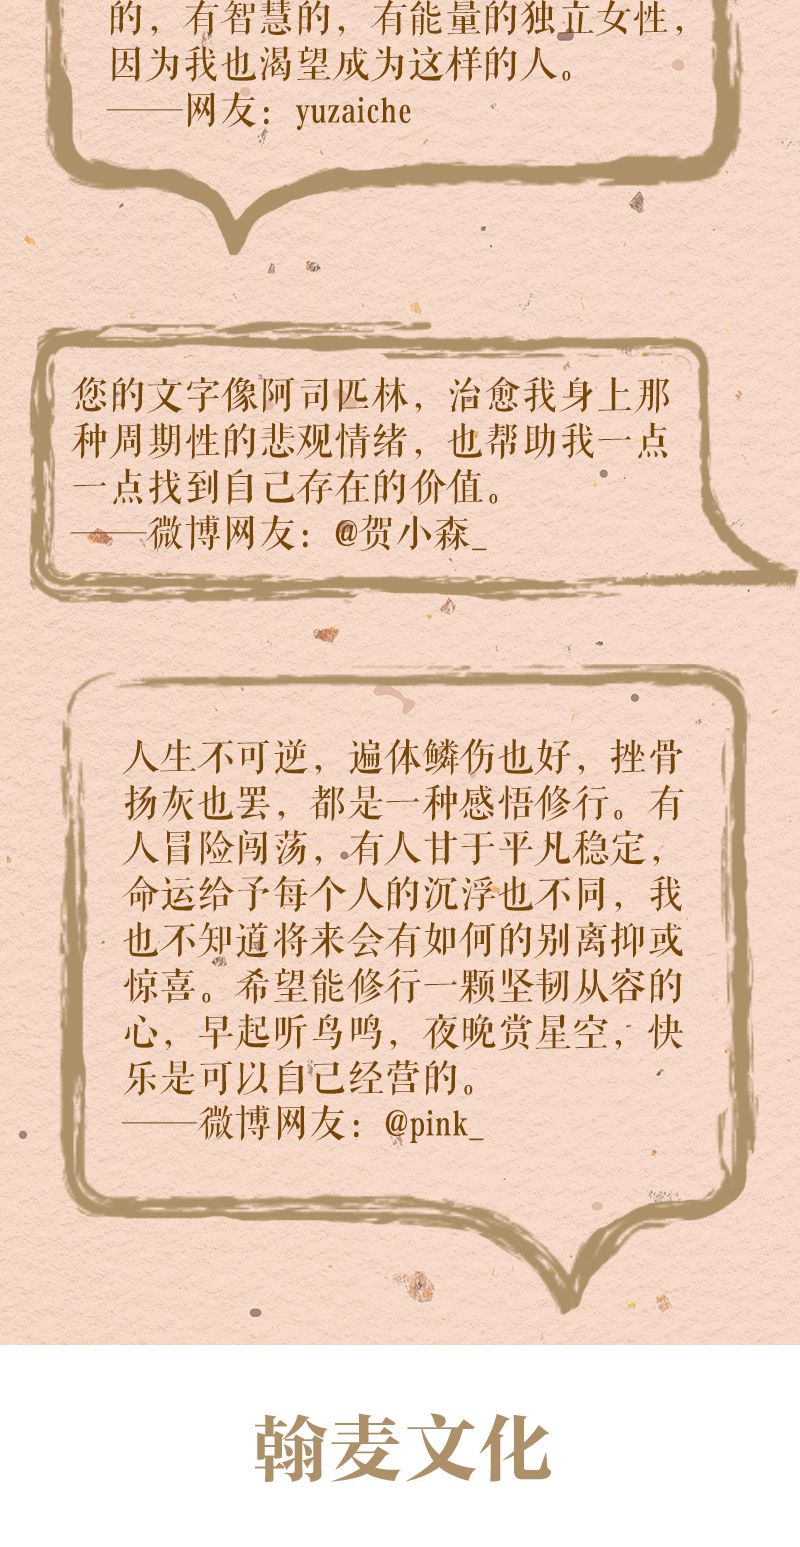 的，有智慧的，有能量的独立女性，
因为我也渴望成为这样的人。
——网友：yuzaiche
您的文字像阿司匹林，治愈我身上那
种周期性的悲观情绪，也帮助我一点
一点找到自己存在的价值。
——微博网友：@贺小森_
人生不可逆，遍体鳞伤也好，挫骨
扬灰也罢，都是一种感悟修行。有
人冒险闯荡，有人甘于平凡稳定，
命运给予每个人的沉浮也不同，我
也不知道将来会有如何的别离抑或
惊喜。希望能修行一颗坚韧从容的
心，早起听鸟鸣，夜晚赏星空，快
乐是可以自己经营的。
——微博网友：@pink_
翰麦文化